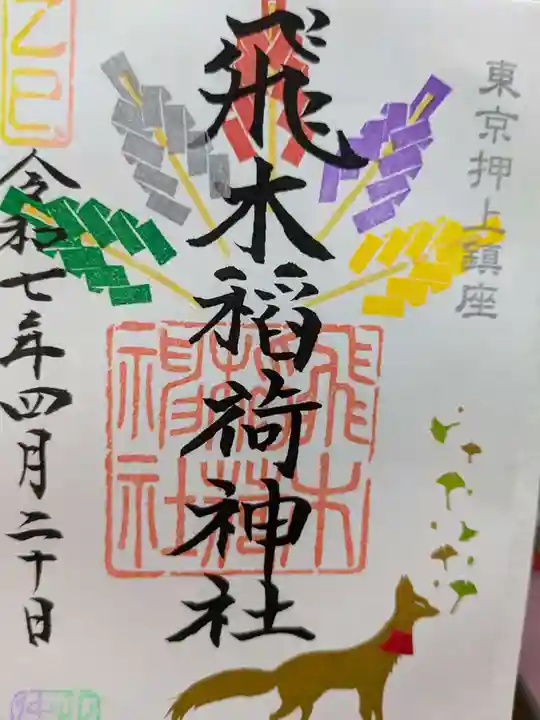 東京押上鎮座
飛木稲荷神社
飛木稲荷神社
乙巳
令和七年四月二十日